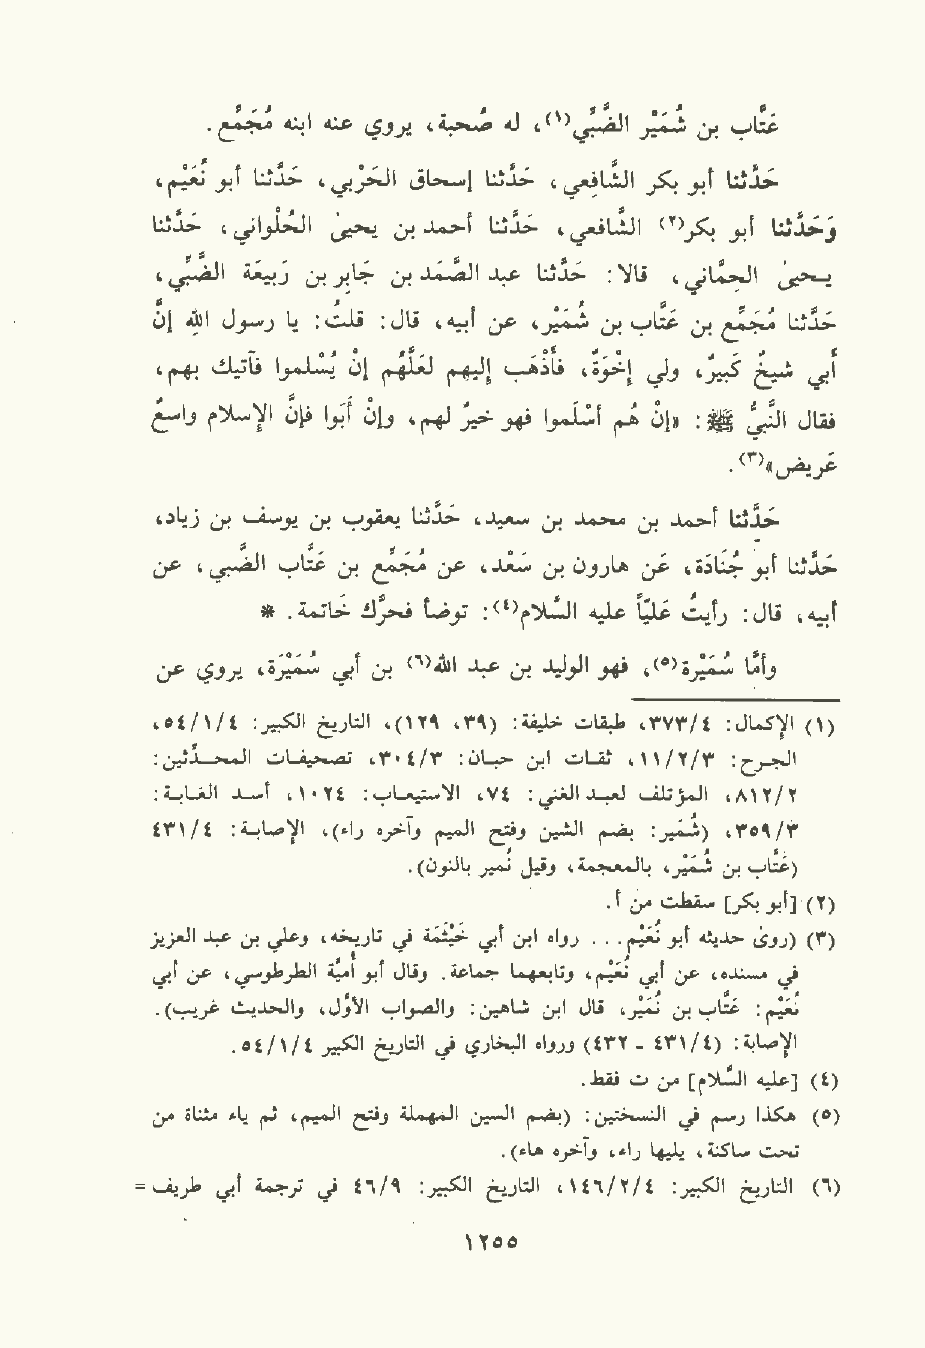 عَتَّاب بن شُمَيْر الضَّبِّي(١)، له صُحبة، يروي عنه ابنه مُجَمِّع.
حَدَّثنا أبو بكر الشَّافِعي، حَدَّثنا إسحاق الحَرْبي، حَدَّثنا أبو نُعَيْم،
وَحَدَّثنا أبو بكر(٢) الشَّافعي، حَدَّثنا أحمد بن يحيىٰ الحُلْواني، حَدَّثنا
يحيىٰ الحِمَّاني، قالا: حَدَّثنا عبد الصَّمَد بن جَابِر بن رَبيعَة الضَّبِّي،
حَدَّثنا مُجَمِّع بن عَتَّاب بن شُمَيْر، عن أبيه، قال: قلتُ: يا رسول الله إنَّ
أبي شيخٌ كبيرٌ، ولي إخْوَةٌ، فأذْهَب إليهم لَعَلَّهُم أنْ يُسْلموا فآتيك بهم،
فقال النَّبيُّ ﷺ: «إنْ هُم أسْلَموا فهو خيرٌ لهم، وإنْ أبَوا فإنَّ الإسلام واسعٌ
عَريض»(٣).
حَدَّثنا أحمد بن محمد بن سعيد، حَدَّثنا يعقوب بن يوسف بن زياد،
حَدَّثنا أبو جُنَادَة، عَن هارون بن سَعْد، عن مُجَمِّع بن عَتَّاب الضَّبي، عن
أبيه، قال: رأيتُ عَليَّاً عليه السَّلام(٤): توضأ فحَرَّك خَاتمة. *
وأمَّا سُمَيْرَة(٥)، فهو الوليد بن عبد الله(٦) بن أبي سُمَيْرَة، يروي عن
(١) الإكمال: ٣٧٣/٤، طبقات خليفة: (٣٩، ١٢٩)، التاريخ الكبير: ٥٤/١/٤،
الجرح: ١١/٢/٣، ثقات ابن حبان: ٣٠٤/٣، تصحيفات المحدّثين:
٨١٢/٢، المؤتلف لعبد الغني: ٧٤، الاستيعاب: ١٠٢٤، أسد الغابة:
٣٥٩/٣، (شُمَير: بضم الشين وفتح الميم وآخره راء)، الإصابة: ٤٣١/٤
(عَتَّاب بن شُمَيْر، بالمعجمة، وقيل نُمير بالنون).
(٢) [أبو بكر] سقطت من أ.
(٣) (روىٰ حديثه أبو نُعَيْم... رواه ابن أبي خَيْثَمَة في تاريخه، وعلي بن عبد العزيز
في مسنده، عن أبي نُعَيْم، وتابعهما جماعة. وقال أبو أُميَّة الطرطوسي، عن أبي
نُعَيْم: عَتَّاب بن نُمَيْر، قال ابن شاهين: والصواب الأوَّل، والحديث غريب).
الإصابة: (٤٣١/٤ - ٤٣٢) ورواه البخاري في التاريخ الكبير ٥٤/١/٤.
(٤) [عليه السَّلام] من ت فقط.
(٥) هكذا رسم في النسختين: (بضم السين المهملة وفتح الميم، ثم ياء مثناة من
تحت ساكنة، يليها راء، وآخره هاء).
(٦) التاريخ الكبير: ١٤٦/٢/٤، التاريخ الكبير: ٤٦/٩ في ترجمة أبي طريف =
١٢٥٥